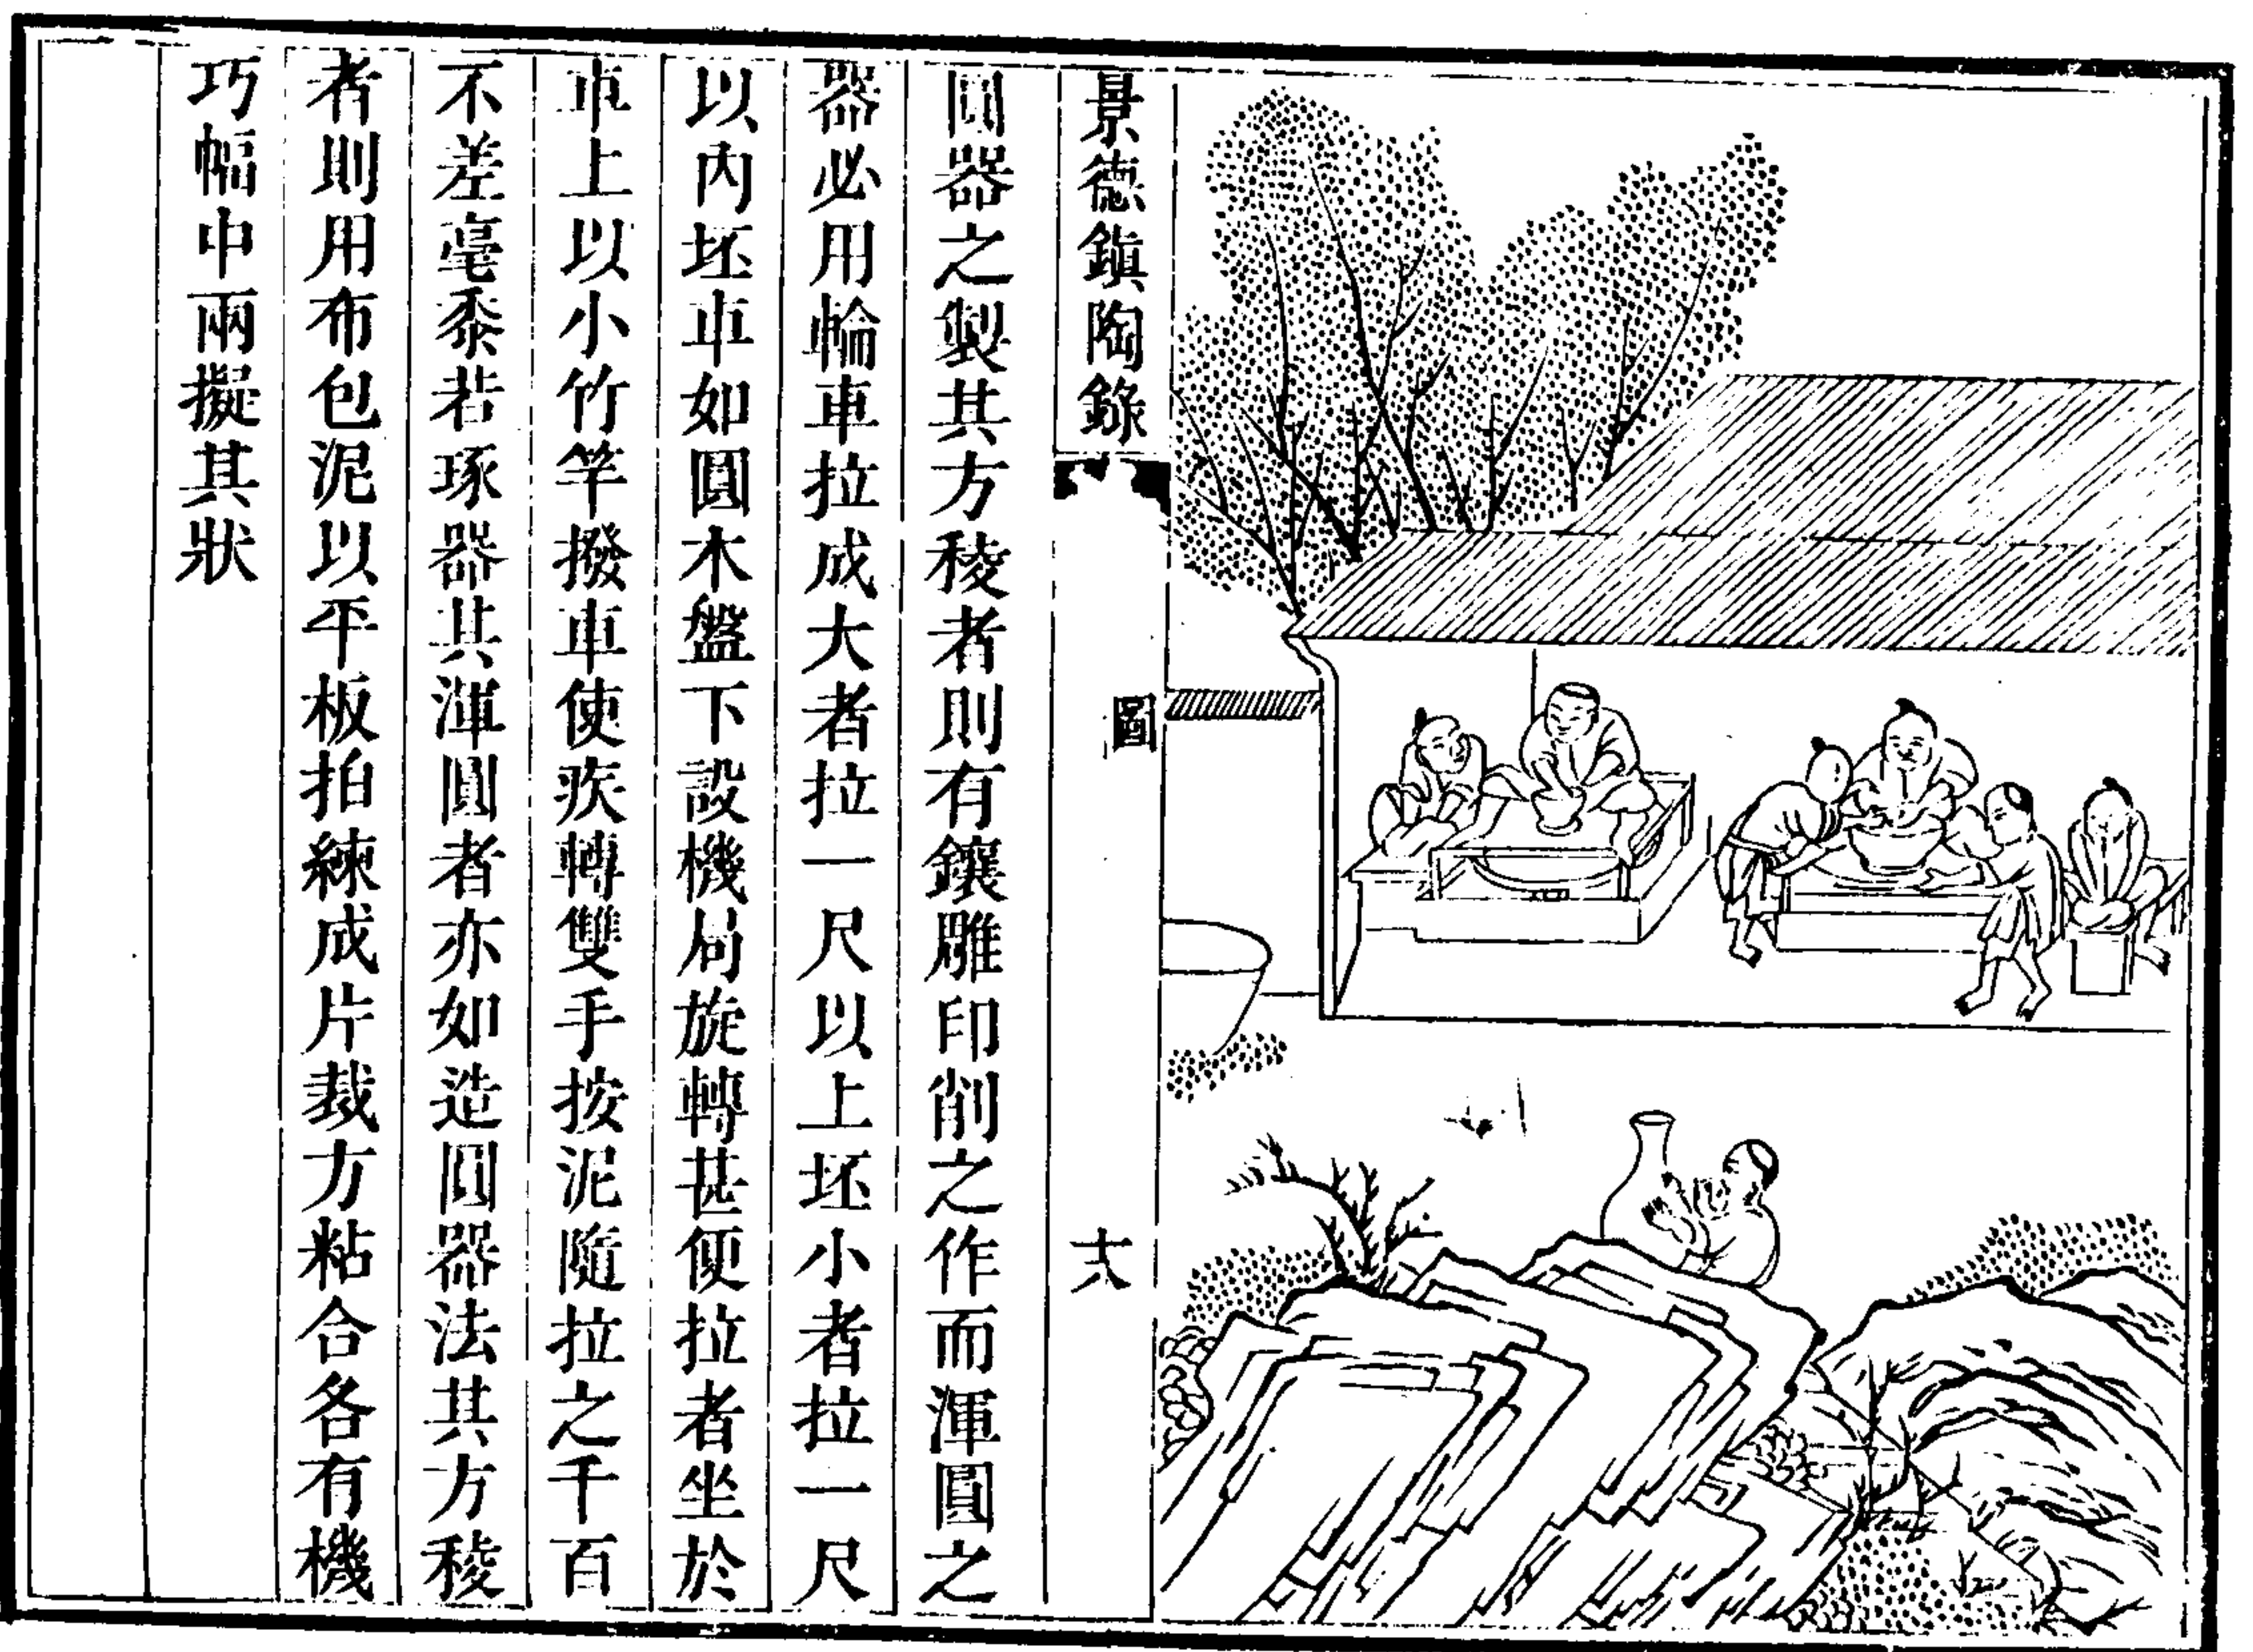 景德鎭陶錄
圖
十八
圓器之製其方稜者則有鑲雕印削之作而渾圓之
器必用輪車拉成大者拉一尺以上坯小者拉一尺
以內坯車如圓木盤下設機局旋轉甚便拉者坐於
車上以小竹竿撥車使疾轉雙手按泥隨拉之千百
不差毫黍若琢器其渾圓者亦如造圓器法其方稜
者則用布包泥以平板拍練成片裁方粘合各有機
巧幅中兩擬其狀